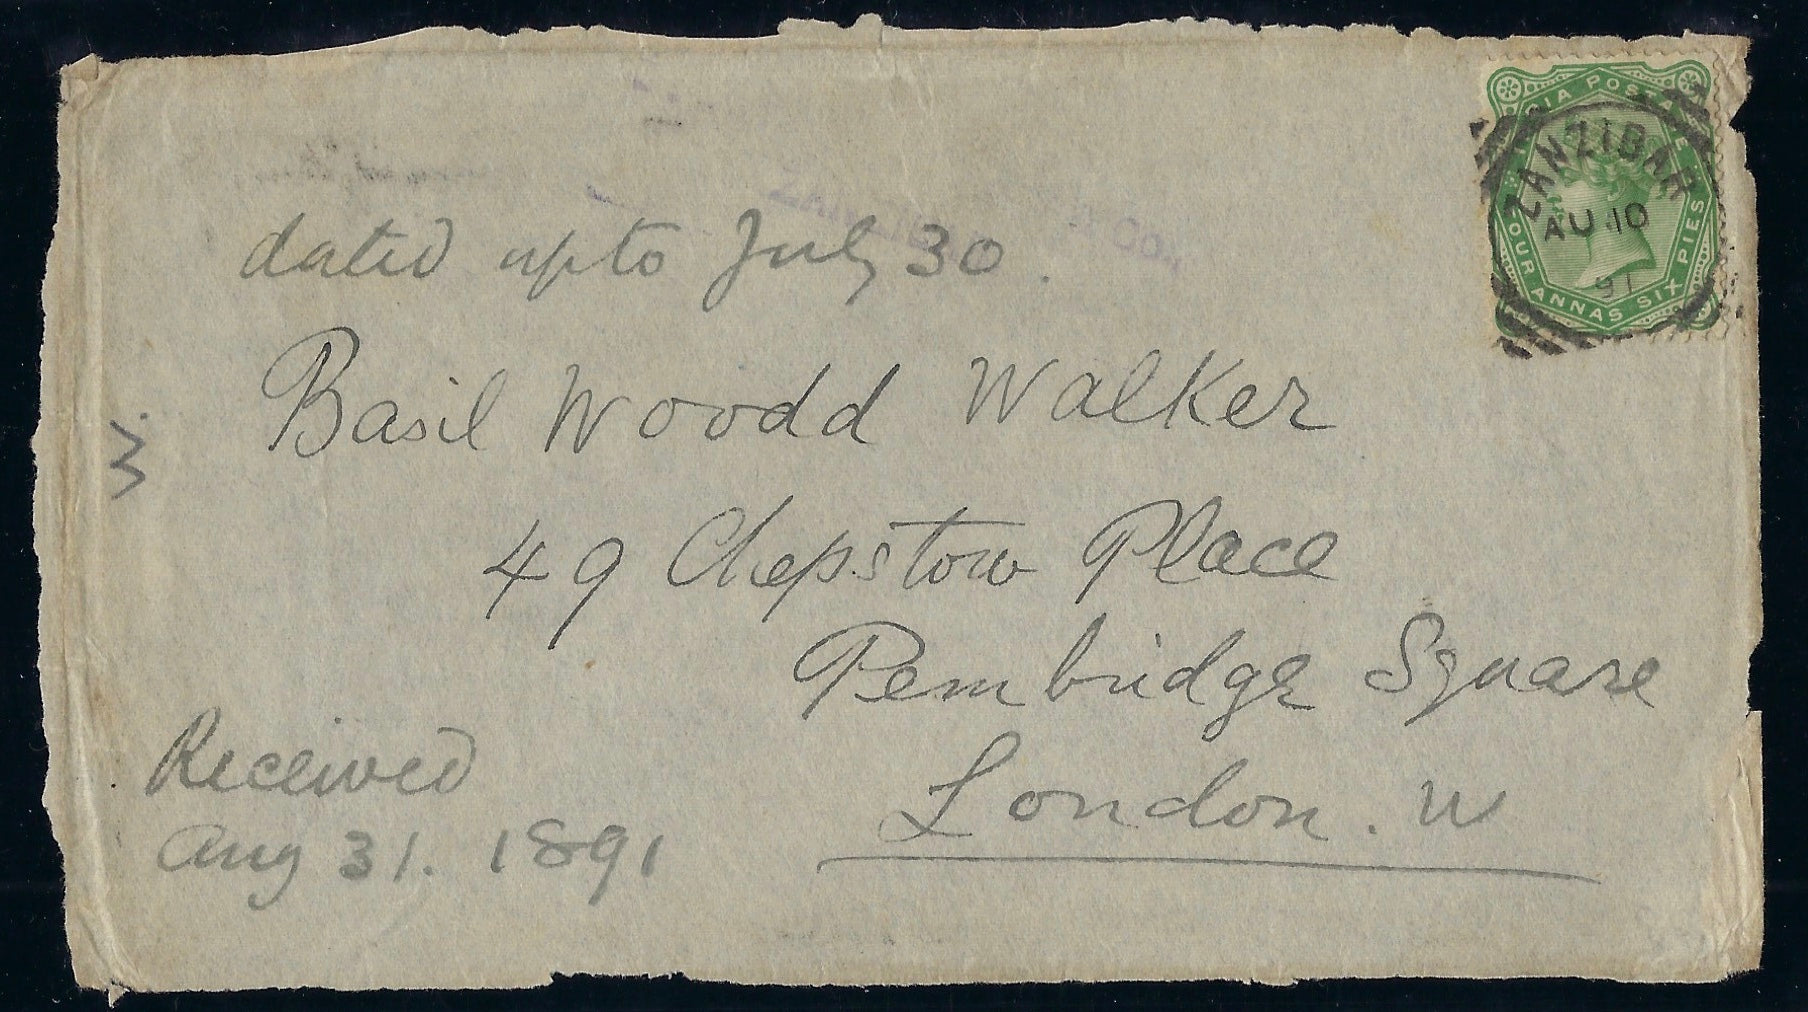 dated up to July 30.
Basil Woodd Walker
49 Chepstow Place
Pembridge Square
London. W
Received
Aug 31. 1891
3.
INDIA POSTAGE
FOUR ANNAS SIX PIES
ZANZIBAR
AU 10
91